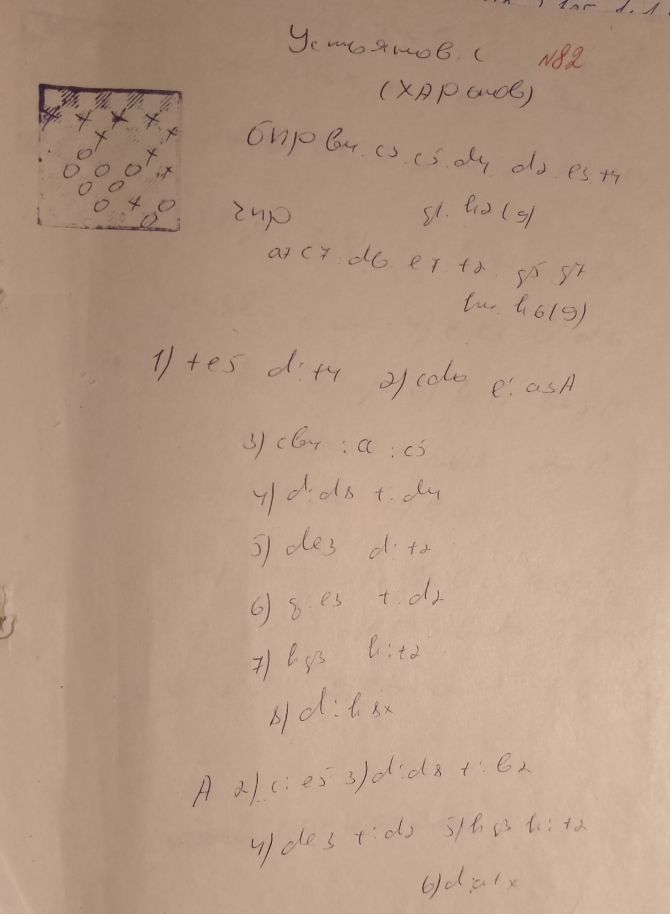 Устьянов. С №82
(ХАРьков)
бпр b4. c3. c5. d4 d2. e3. f4
g1. h2 (9)
чпр
a7 c7. d6 e7. f2. g5 g7
h4. h6 (9)
1) fe5 d:f4 2) cd6 e: a5A
3) cb4 :a :c5
4) d:d8 f:d4
5) de3 d:f2
6) g:e3 f:d2
7) hg3 h:f2
8) d:h8x
A 2) c:e5 3) d:d8 f:b2
4) de3 f:d2 5) hg3 h:f2
6) d:a1x